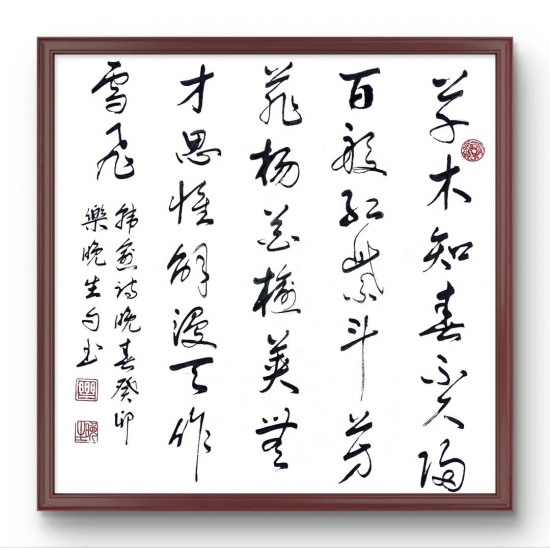 草木知春不久归
百般红紫斗芳
菲杨花榆荚無
才思惟解漫天作
雪飛
韩愈诗晚春癸卯
樂晚生书